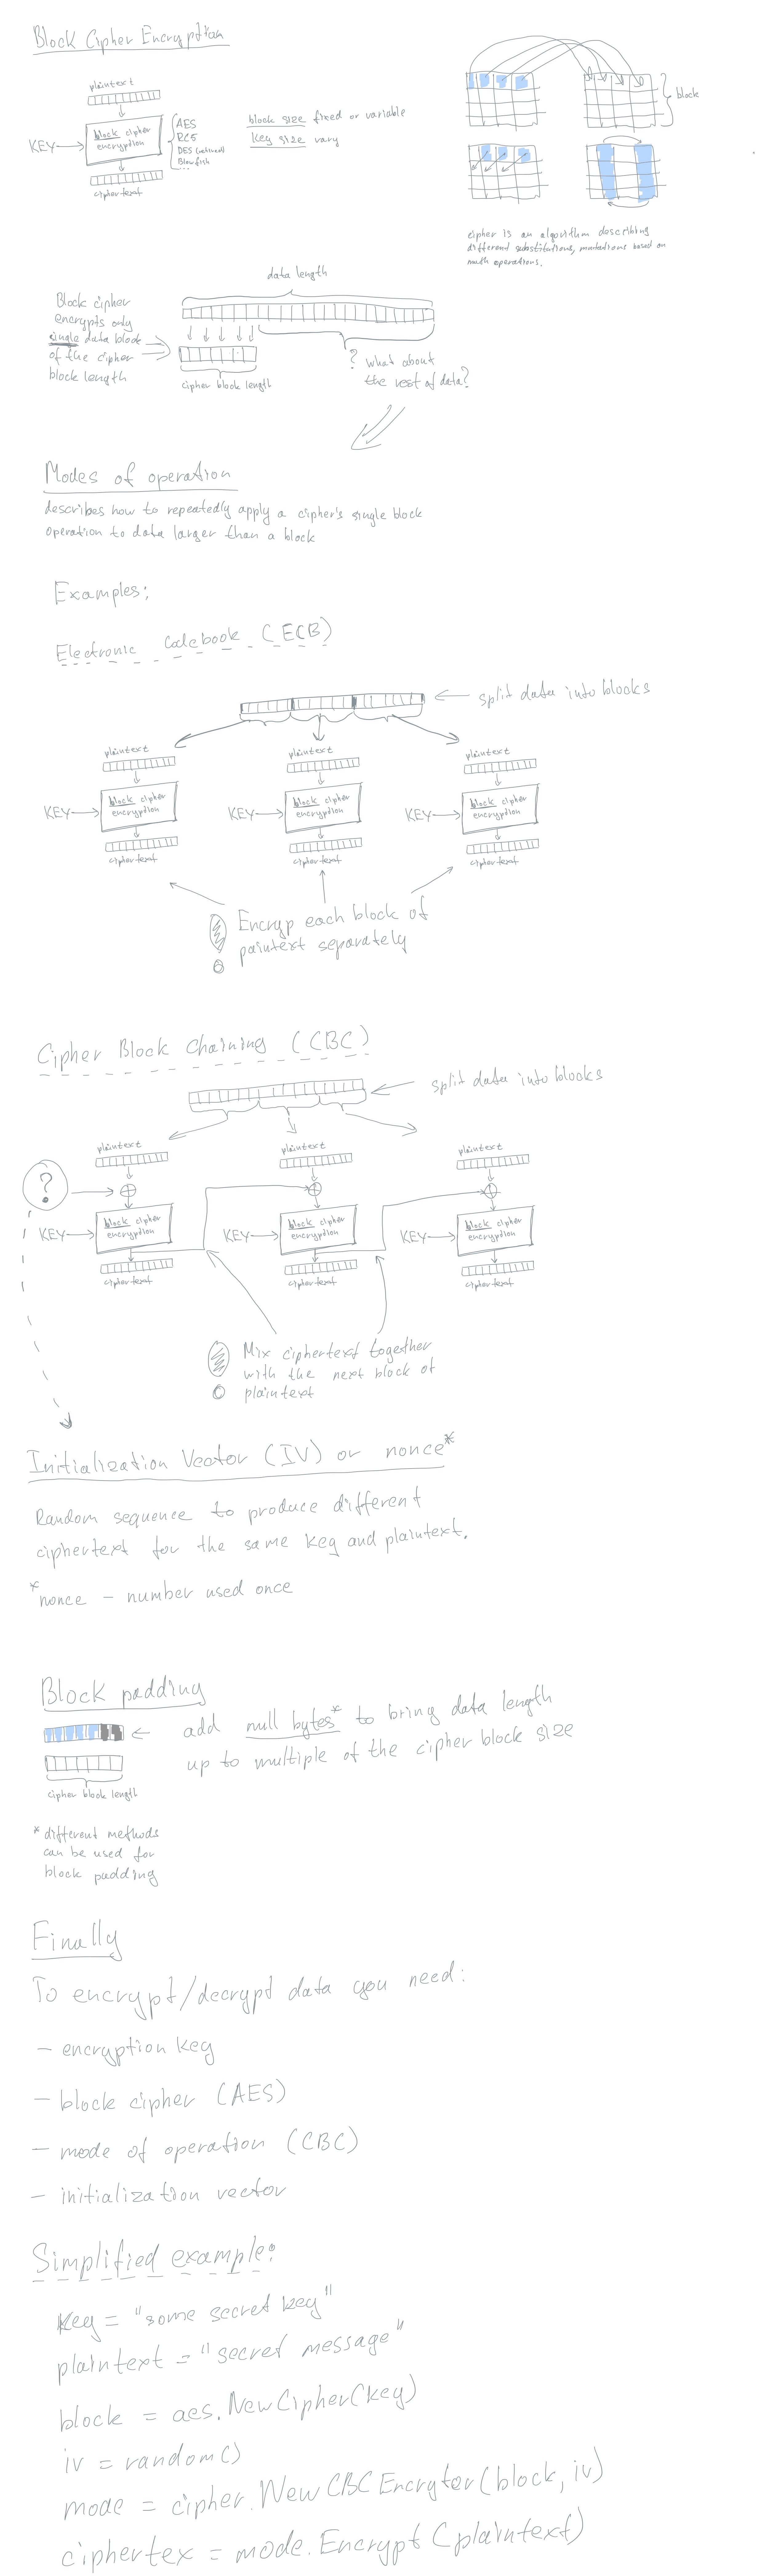 Block Cipher Encryption
plaintext
KEY
block cipher
encryption
ciphertext
AES
RC5
DES (retired)
Blowfish
...
block size fixed or variable
key size vary
block
cipher is an algorithm describing
different substitutions, mutations based on
math operations.
data length
Block cipher
encrypts only
single data block
of the cipher
block length
cipher block length
? what about
the rest of data?
Modes of operation
describes how to repeatedly apply a cipher's single block
operation to data larger than a block
Examples:
Electronic Codebook (ECB)
split data into blocks
plaintext
KEY
block cipher
encryption
ciphertext
plaintext
KEY
block cipher
encryption
ciphertext
plaintext
KEY
block cipher
encryption
ciphertext
! Encryp each block of
paintext separately
Cipher Block Chaining (CBC)
split data into blocks
?
plaintext
KEY
block cipher
encryption
ciphertext
plaintext
KEY
block cipher
encryption
ciphertext
plaintext
KEY
block cipher
encryption
ciphertext
! Mix ciphertext together
with the next block of
plaintext
Initialization Vector (IV) or nonce*
Random sequence to produce different
ciphertext for the same key and plaintext.
*nonce - number used once
Block padding
add null bytes* to bring data length
up to multiple of the cipher block size
cipher block length
* different methods
can be used for
block padding
Finally
To encrypt/decrypt data you need:
- encryption key
- block cipher (AES)
- mode of operation (CBC)
- initialization vector
Simplified example:
key = "some secret key"
plaintext = "secret message"
block = aes.NewCipher(key)
iv = random()
mode = cipher.NewCBCEncryter(block, iv)
ciphertex = mode.Encrypt(plaintext)